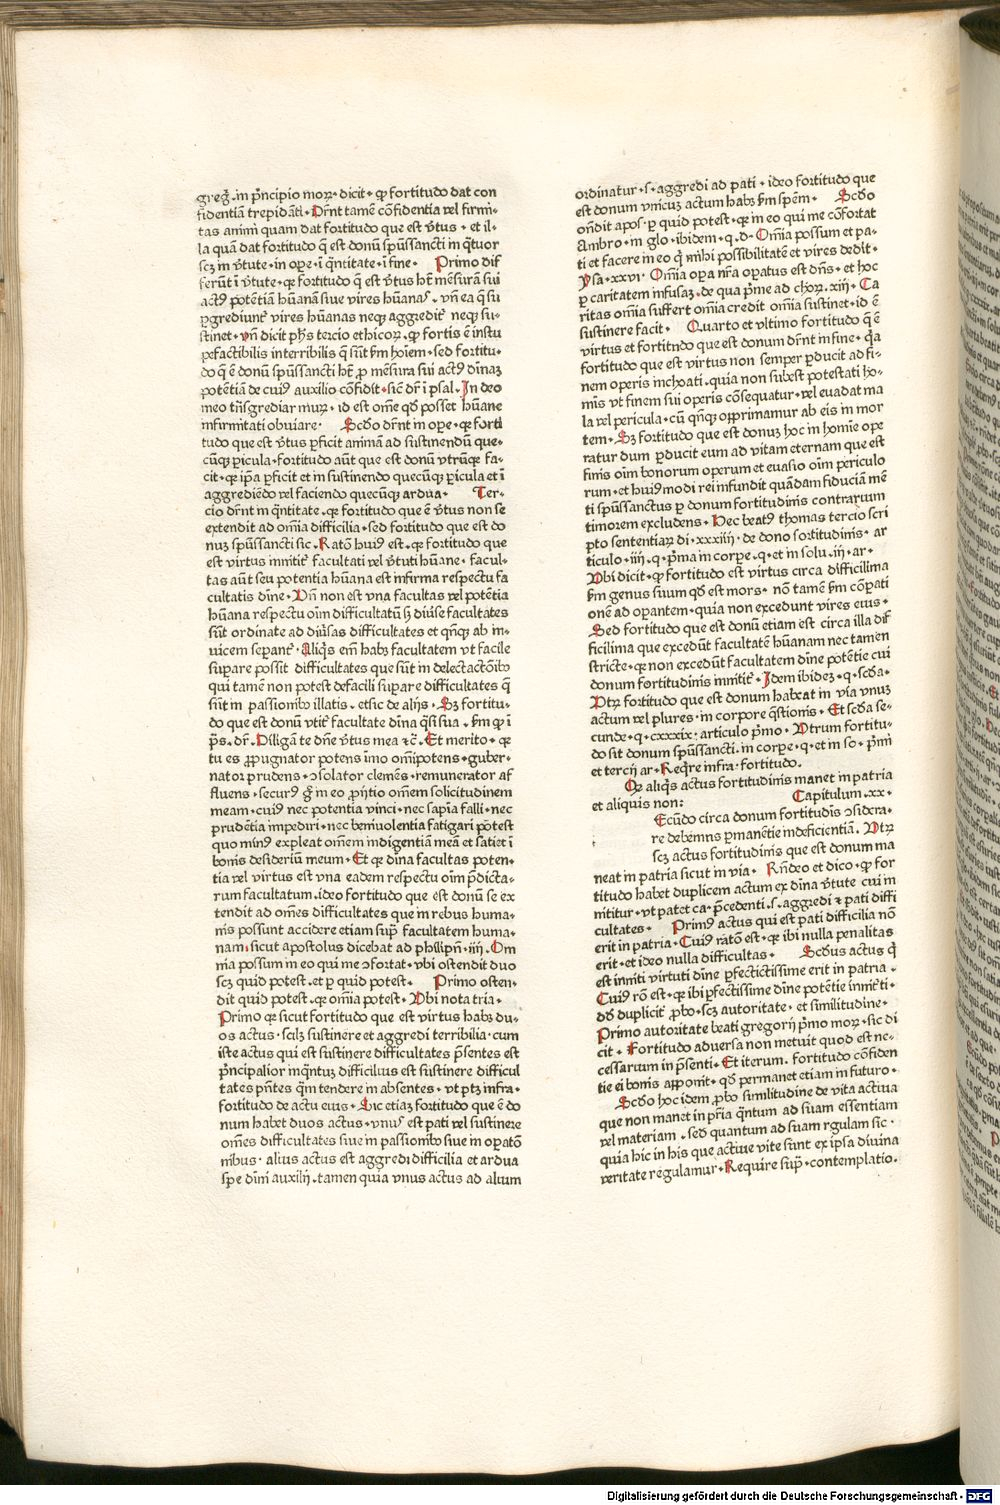 greg̃. in p̃ncipio moꝝ. dicit. ꝙ fortitudo dat con
fidentiã trepidãti. Dr̃nt tamẽ cõfidentia vel firmi-
tas animi quam dat fortitudo que est ṽtus. et il-
la quã dat fortitudo q̃ est donũ spũssancti in q̃tuor
scꝫ in ṽtute. in ope. ĩ q̃ntitate. ĩ fine. Primo dif
ferũt ĩ ṽtute. qꝛ fortitudo q̃ est ṽtus hꝫ mẽsurã sui
actꝰ potẽtiã hũanã siue vires hũanas. vñ ea q̃ su
ꝑgrediunt̃ vires hũanas neqꝫ aggredit̃ neqꝫ su-
stinet. vñ dicit phs tercio ethicoꝝ. ꝙ fortis ẽ instu
pefactibilis interribilis q̃ sũt ẜm hoĩem. sed fortitu-
do q̃ ẽ donũ spũssancti hꝫ ꝓ mẽsura sui actꝰ diuinã
potẽtiã de cuiꝰ auxilio cõfidit. sic̃ dr̃ ĩ psal. In deo
meo trãsgrediar muꝝ. id est om̃e qd̃ posset hũane
infirmitati obuiare. Scd̃o dr̃nt in ope. qꝛ forti
tudo que est ṽtus ꝑficit animã ad sustinendũ que-
cũqꝫ ꝑicula. fortitudo aũt que est donũ vtrũqꝫ fa-
cit. qꝛ ip̃a ꝑficit et in sustinendo quecũqꝫ ꝑicula et ĩ
aggrediẽdo vel faciendo quecũqꝫ ardua. Ter-
cio dr̃nt in q̃ntitate. qꝛ fortitudo que ẽ ṽtus non se
extendit ad om̃ia difficilia. sed fortitudo que est do
nuꝫ spũssancti sic. Ratõ huiꝰ est. qꝛ fortitudo que
est virtus innitit̃ facultati vel ṽtuti hũane. facul-
tas aũt seu potentia hũana est infirma respectu fa
cultatis diuĩe. Vñ non est vna facultas vel potẽtia
hũana respectu oĩm difficultatũ sꝫ diuẽse facultates
sũt ordinate ad diuẽsas difficultates et qñqꝫ ab in-
uicem sepant̃. Aliqs em̃ habꝫ facultatem vt facile
supare possit difficultates que sũt in delectactõibꝰ
qui tamẽ non potest de facili supare difficultates q̃
sũt in passionibꝰ illatis. et sic de alijs. Sꝫ fortitu-
do que est donũ vtit̃ facultate diuina q̃si sua. ẜm qꝛ ĩ
p̃s. dr̃. Diligã te dñe ṽtus mea ⁊c̃. Et merito. qꝛ
tu es ꝓpugnator potens ĩmo om̃ipotens. guber-
nator prudens. ꝯsolator clemẽs. remunerator af
fluens. securꝰ g̃ in eo ꝓijtio om̃em solicitudinem
meam. cuiꝰ nec potentia vinci. nec sapĩa falli. nec
prudẽtia impediri. nec beniuolentia fatigari potest
quo minꝰ expleat om̃em indigentiã meã et satiet ĩ
bonis desideriũ meum. Et qꝛ diuina facultas poten-
tia vel virtus est vna eadem respectu oĩm p̃dicta-
rum facultatum. ideo fortitudo que est donũ se ex
tendit ad om̃es difficultates que in rebus huma-
nis possunt accidere etiam sup̃ facultatem huma-
nam. sicut apostolus dicebat ad philippñ. iiij. Om
nia possum in eo qui me ꝯfortat. vbi ostendit duo
scꝫ quid potest. et ꝑ quid potest. Primo osten-
dit quid potest. qꝛ om̃ia potest. Vbi nota tria.
Primo qꝛ sicut fortitudo que est virtus habꝫ du-
os actus. scilꝫ sustinere et aggredi terribilia. cum
iste actus qui est sustinere difficultates p̃sentes est
p̃ncipalior inq̃ntuꝫ difficilius est sustinere difficul
tates p̃ntes q̃m tendere in absentes. vt ptꝫ infra.
fortitudo de actu eius. Sic etiaꝫ fortitudo que ẽ do
num habet duos actus. vnus est pati vel sustinere
om̃es difficultates siue in passionibꝰ siue in opatõ
nibus. alius actus est aggredi difficilia et ardua
spe diuini auxilij. tamen quia vnus actus ad alium
ordinatur. s. aggredi ad pati. ideo fortitudo que
est donum vnicuꝫ actum habꝫ ẜm spẽm. Scd̃o
oñdit apos. ꝑ quid potest. qꝛ in eo qui me cõfortat
Ambro. in glo. ibidem. q. d. Om̃ia possum et pa-
ti et facere in eo q̃ mihi possibilitatẽ et vires dedit.
Ysa. xxvi. Om̃ia opa nr̃a opatus est dñs. et hoc
ꝑ caritatem infusaꝫ. de qua pr̃me ad choꝝ. xiij. Ca
ritas om̃ia suffert om̃ia credit om̃ia sustinet. id ẽ
sustinere facit. Quarto et vltimo fortitudo q̃ ẽ
virtus et fortitudo que est donum dr̃nt in fine. q̃a
fortitudo que est virtus non semper ꝑducit ad fi-
nem operis inchoati. quia non subest potestati ho-
mis vt finem sui operis cõsequatur. vel euadat ma
la vel pericula. cũ qñqꝫ opprimamur ab eis in mor
tem. Sꝫ fortitudo que est donuꝫ hoc in homie ope
ratur dum ꝑducit eum ad vitam eternam que est
finis oĩm bonorum operum et euasio oĩm periculo
rum. et huiꝰmodi rei infundit quãdam fiduciã mẽ
ti spũssanctus ꝑ donum fortitudinis contrarium
timorem excludens. Hec beatꝰ thomas tercio scri
pto sententiaꝝ di. xxxiiij. de dono fortitudinis. ar
ticulo. iiij. q. p̃ma in corpe. q. et in solu. iij. ar.
Vbi dicit. ꝙ fortitudo est virtus circa difficilima
ẜm genus suum qd̃ est mors. nõ tamẽ ẜm cõpati
onẽ ad opantem. quia non excedunt vires eius.
Sed fortitudo que est donũ etiam est circa illa dif
ficilima que excedũt facultatẽ hũanam nec tamen
stricte. qꝛ non excedũt facultatem diuĩe potẽtie cui
donum fortitudinis innitit̃. Idem ibideꝫ. q. scd̃a.
Vtꝝ fortitudo que est donum habeat in via vnuꝫ
actum vel plures. in corpore q̃stionis. Et scd̃a se-
cunde. q. cxxxix. articulo pr̃mo. Vtrum fortitu-
do sit donum spũssancti. in corpe. q. et in so. pr̃mi
et tercij ar. Reqͥre infra. fortitudo.
Qꝛ aliqͥs actus fortitudinis manet in patria
et aliquis non: Capitulum. xx.
Ecũdo circa donum fortitudis ꝯsidera-
re debemus ꝑmanẽtie indeficientiã. Vtꝝ
scꝫ actus fortitudinis que est donum ma
neat in patria sicut in via. Rñdeo et dico. ꝙ for
titudo habet duplicem actum ex diuina ṽtute cui in
nititur. vt patet ca. p̃cedenti. s. aggredi ⁊ pati diffi
cultates. Primꝰ actus qui est pati difficilia nõ
erit in patria. Cuiꝰ ratõ est. qꝛ ibi nulla penalitas
erit. et ideo nulla difficultas. Scd̃us actus q̃
est inniti virtuti diuĩe ꝑfectictissime erit in patria.
Cuiꝰ rõ est. qꝛ ibi ꝑfectissime diuĩe potẽtie innitĩ.
Qd̃ duplicit̃ ꝓbo. scꝫ autoritate. et similitudine.
Primo autoritate beati gregorij p̃mo moꝝ. sic di
cit. Fortitudo aduersa non metuit quod est ne-
cessarium in p̃senti. Et iterum. fortitudo cõfiden
tie ei bonis apponit. qd̃ permanet etiam in futuro.
Scd̃o hoc idem ꝓbo similitudine de vita actiua
que non manet in pr̃ia q̃ntum ad suam essentiam
vel materiam. sed quantum ad suam rgulam sic.
quia hic in his que actiue vite sunt ex ipsa diuina
veritate regulamur. Require sup̃. contemplatio.
Digitalisierung gefördert durch die Deutsche Forschungsgemeinschaft - DFG